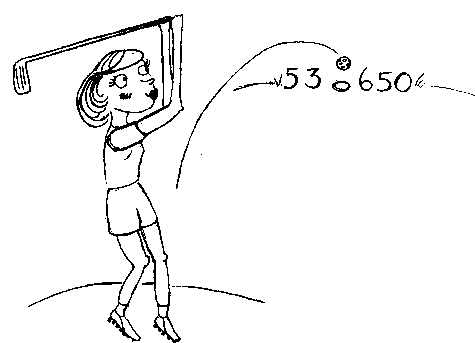 53 650